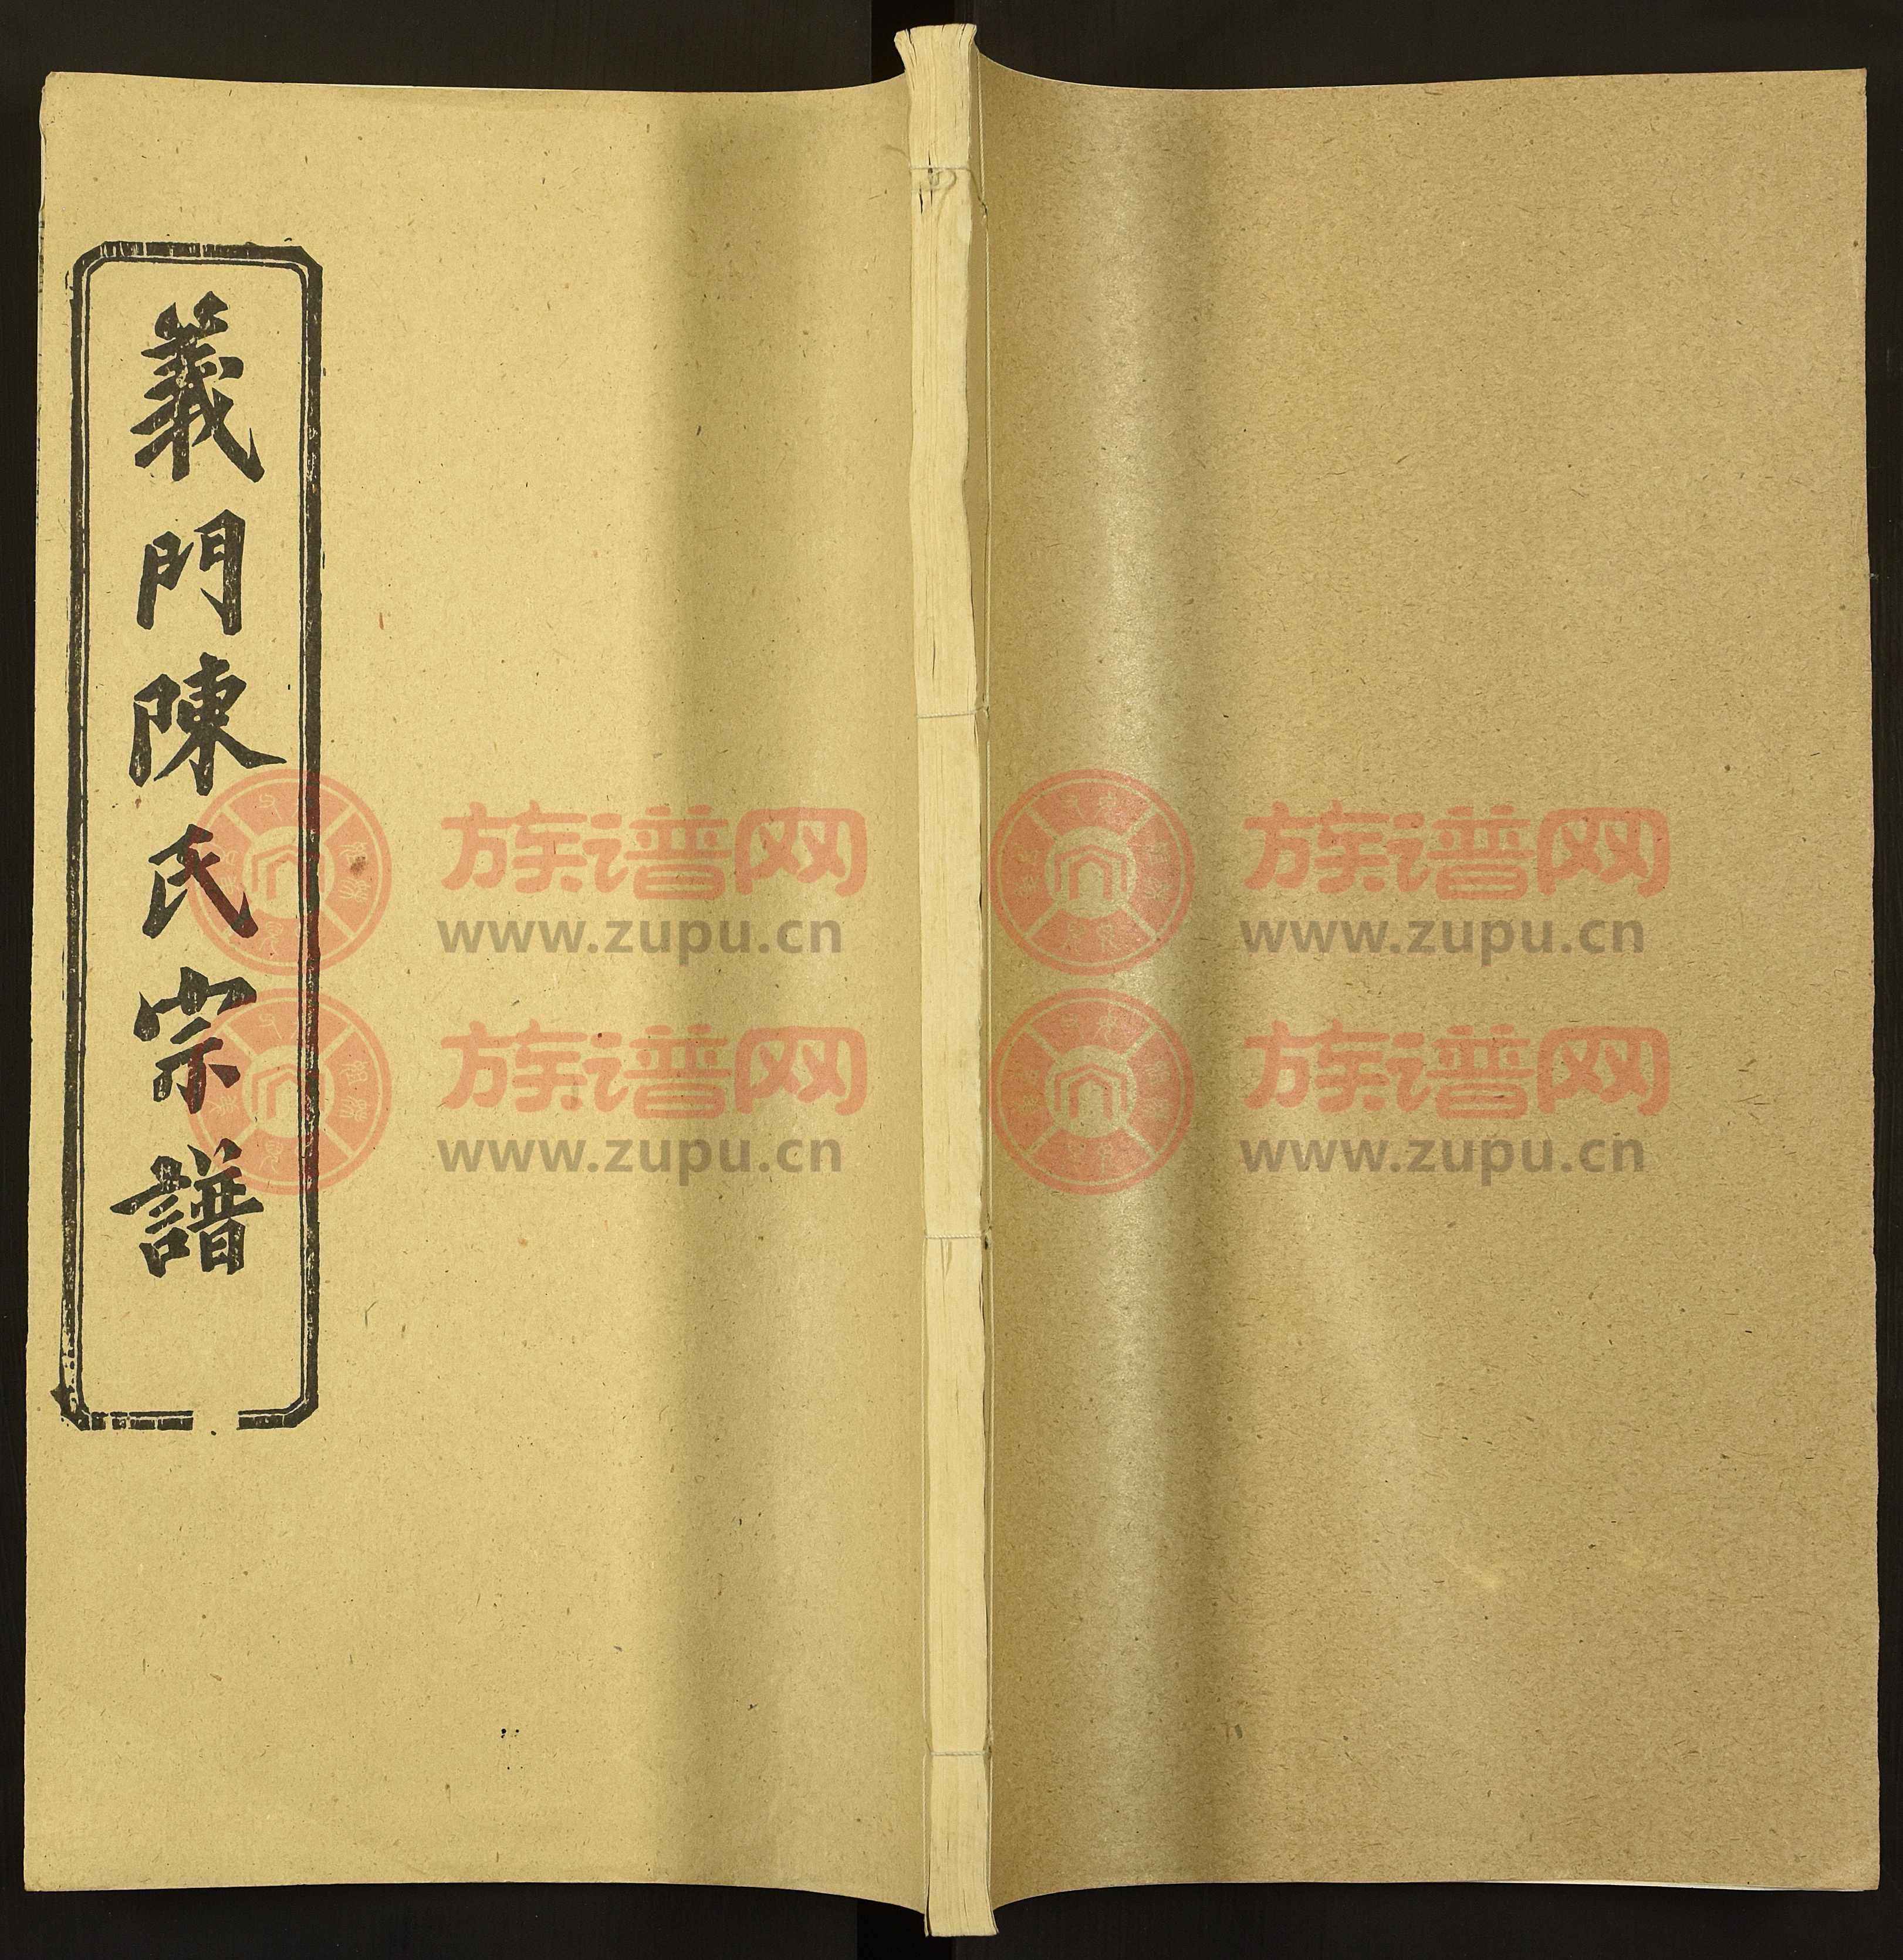 義門陳氏宗譜
族谱网
www.zupu.cn
族谱网
www.zupu.cn
族谱网
www.zupu.cn
族谱网
www.zupu.cn